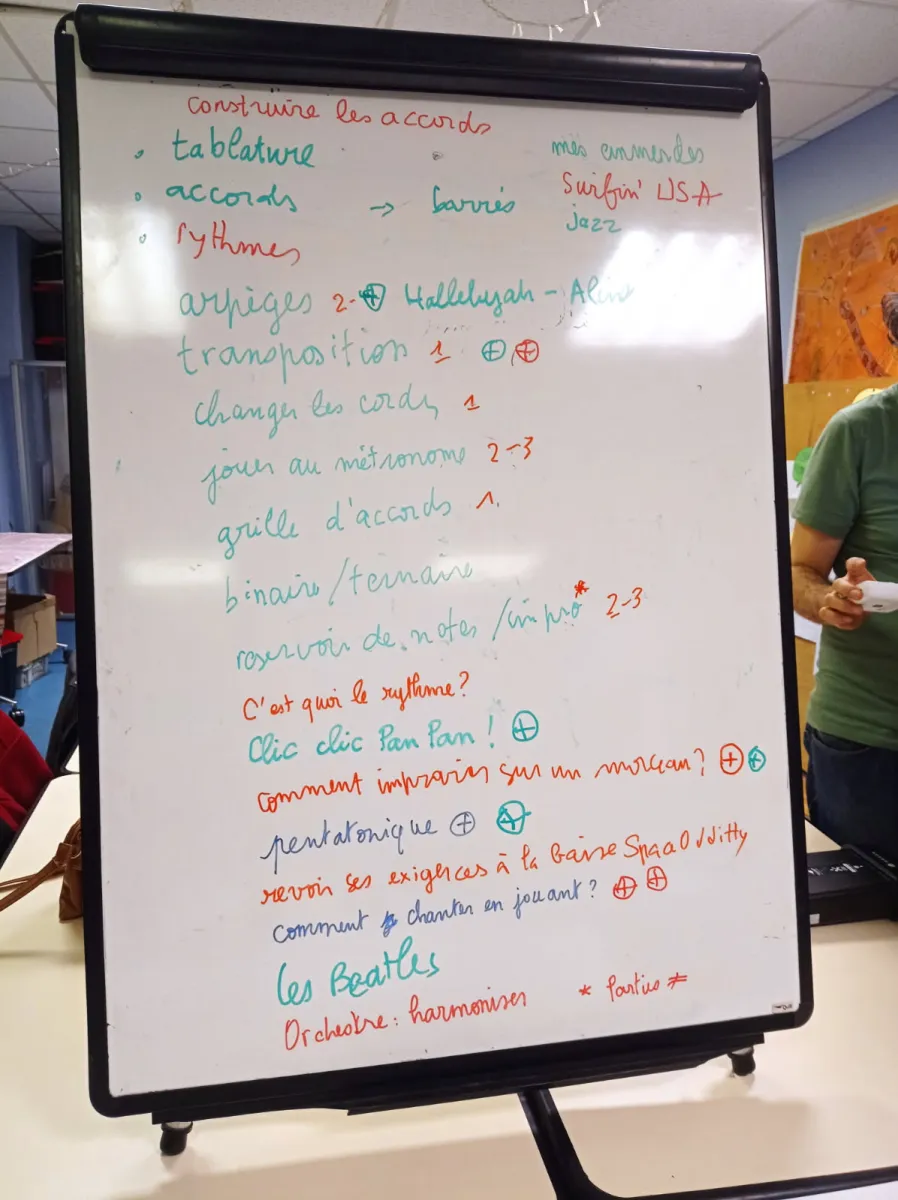 construire les accords
• tablature
mes emmerdes
• accords → barrés
Surfin' USA
jazz
• rythmes
arpèges 2-⊕ Hallelujah - Aline
transposition 1 ⊕ ⊕
changer les cordes 1
jouer au métronome 2-3
grille d'accords 1.
binaire/ternaire
reservoir de notes /impro* 2-3
C'est quoi le rythme?
Clic clic Pan Pan! ⊕
comment improviser sur un morceau? ⊕ ⊕
pentatonique ⊕ ⊕
revoir ses exigences à la baisse Spaa Oddity
comment chanter en jouant? ⊕ ⊕
les Beatles
Orchestre: harmoniser * Parties ≠